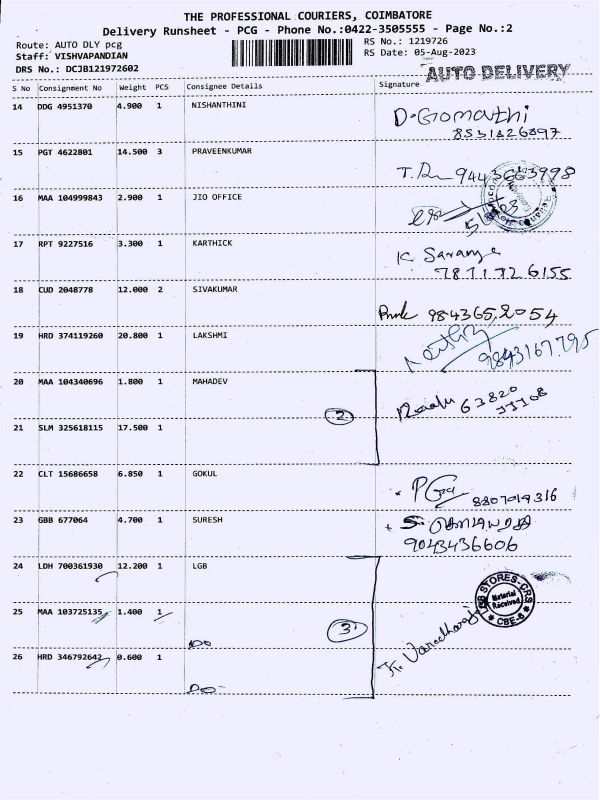 THE PROFESSIONAL COURIERS, COIMBATORE
Delivery Runsheet - PCG - Phone No.:0422-3505555 - Page No.:2
Route: AUTO DLY pcg RS No.: 1219726
Staff: VISHVAPANDIAN RS Date: 05-Aug-2023
DRS No.: DCJB121972602
AUTO DELIVERY
S No Consignment No Weight PCS Consignee Details Signature
14 DDG 4951370 4.900 1 NISHANTHINI D. Gomathi
15 PGT 4622801 14.500 3 PRAVEENKUMAR
16 MAA 104999843 2.900 1 JIO OFFICE
17 RPT 9227516 3.300 1 KARTHICK K Saranya
7871726155
18 CUD 2048778 12.000 2 SIVAKUMAR 9843652054
19 HRD 374119260 20.800 1 LAKSHMI
9843167795
20 MAA 104340696 1.800 1 MAHADEV 63820
2
21 SLM 325618115 17.500 1
22 CLT 15686658 6.850 1 GOKUL
8807019316
23 GBB 677064 4.700 1 SURESH
9043436606
24 LDH 700361930 12.200 1 LGB
LGB STORES-CRS
Material
Received
CBE-6
25 MAA 103725135 1.400 1
3
DO
26 HRD 346792642 0.600 1
DO